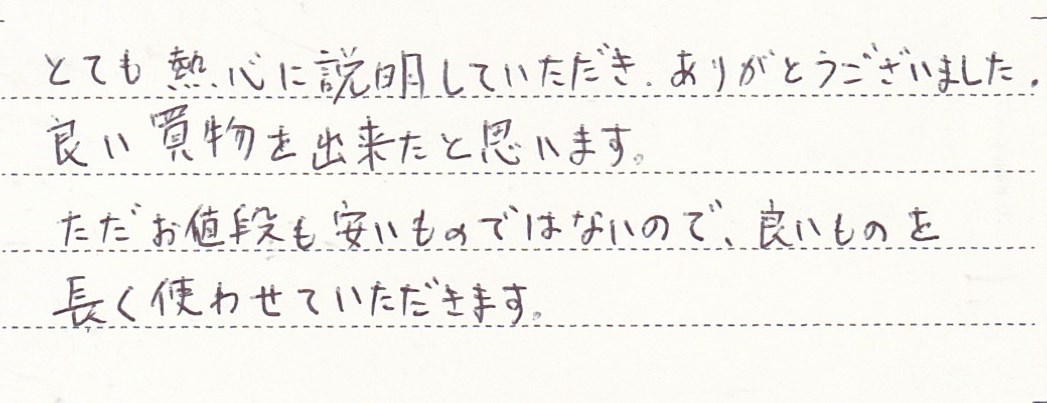 とても熱心に説明していただき、ありがとうございました。
良い買物を出来たと思います。
ただお値段も安いものではないので、良いものを
長く使わせていただきます。